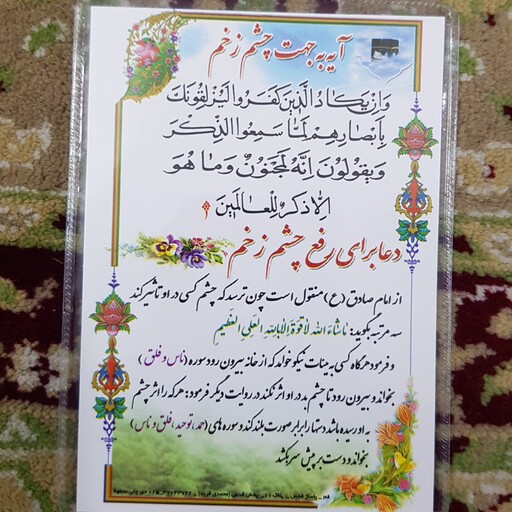 آیه به جهت چشم زخم
وَاِنْ يَكَادُ الَّذينَ كَفَرُوا لَيُزْلِقُونَكَ
بِاَبْصارِهِمْ لَمَّا سَمِعُوا الذِّكْرَ
وَيَقُولُونَ اِنَّهُ لَمَجْنُونٌ وَمَا هُوَ
اِلاّ ذِكْرٌ لِلْعالَمينَ
دعا برای رفع چشم زخم
از امام صادق (ع) منقول است چون ترسد که چشم کسی در او تاثیر کند
سه مرتبه بگوید: ماشاءَ الله لاقوة الا بالله العلی العظیم
و فرمود هرگاه کسی به هیئات نیکو خواهد که از خانه بیرون رود سوره (ناس و فلق)
بخواند و بیرون رود تا چشم بد در او اثر نکند در روایت دیگر فرمود: هر که را اثر چشم
به او رسیده باشد دستها را برابر صورت بلند کند و سوره های (حمد، توحید، فلق و ناس)
بخواند و دست بر پیش سر بکشد
قم - پاساژ قدس - پلاک